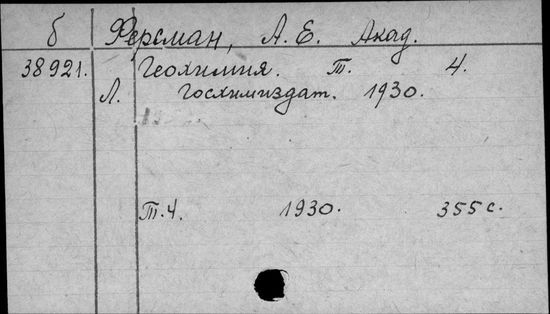 б Ферсман, А. Е. Акад.
38921. Геохимия. Т. 4.
Л. Госхимиздат. 1930.
Т. 4. 1930. 355 с.